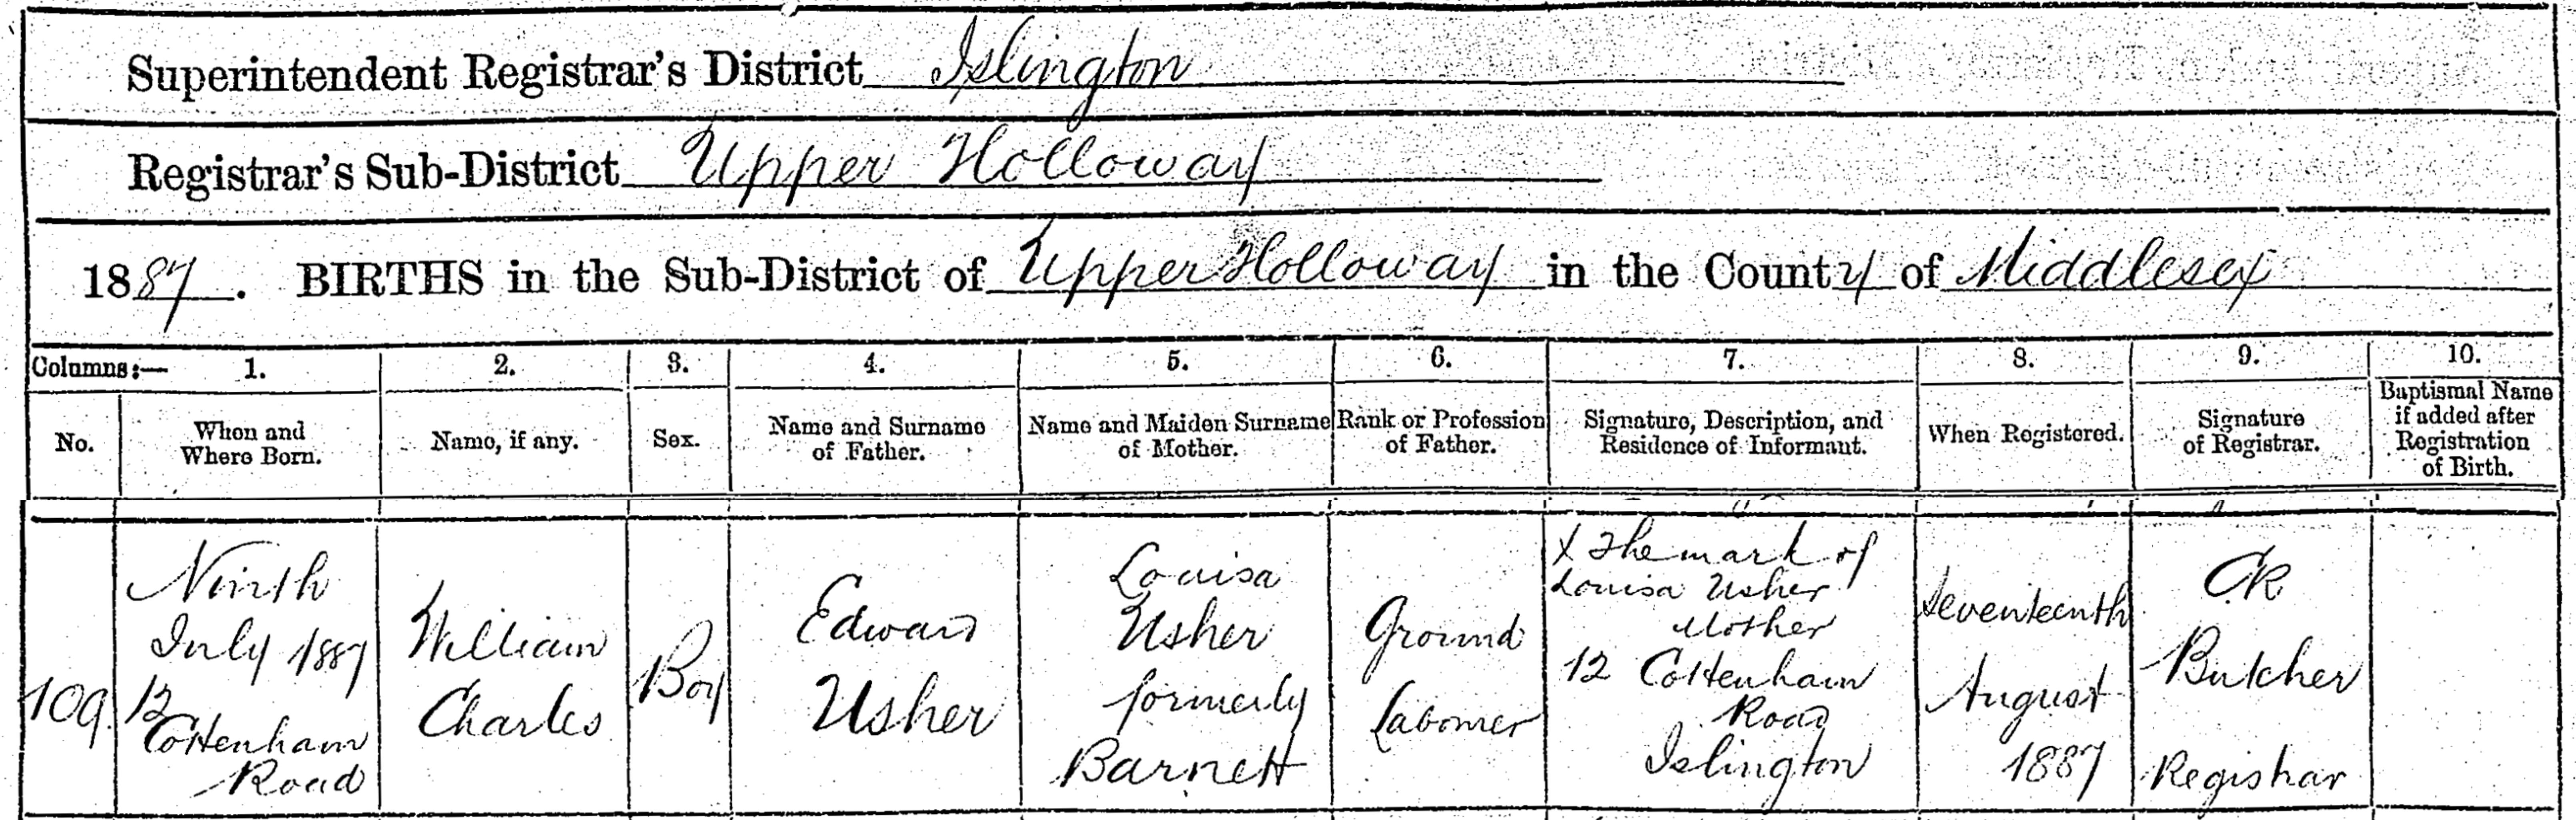 Superintendent Registrar's District Islington
Registrar's Sub-District Upper Holloway
1887. BIRTHS in the Sub-District of Upper Holloway in the County of Middlesex
Columns:— 1. 2. 3. 4. 5. 6. 7. 8. 9. 10.
No.
When and
Where Born.
Name, if any.
Sex.
Name and Surname
of Father.
Name and Maiden Surname
of Mother.
Rank or Profession
of Father.
Signature, Description, and
Residence of Informant.
When Registered.
Signature
of Registrar.
Baptismal Name
if added after
Registration
of Birth.
109.
Ninth
July 1887
12
Cottenham
Road
William
Charles
Boy
Edward
Usher
Louisa
Usher
formerly
Barnett
Ground
Labourer
X The mark of
Louisa Usher
Mother
12 Cottenham
Road
Islington
Seventeenth
August
1887
Butcher
Registrar